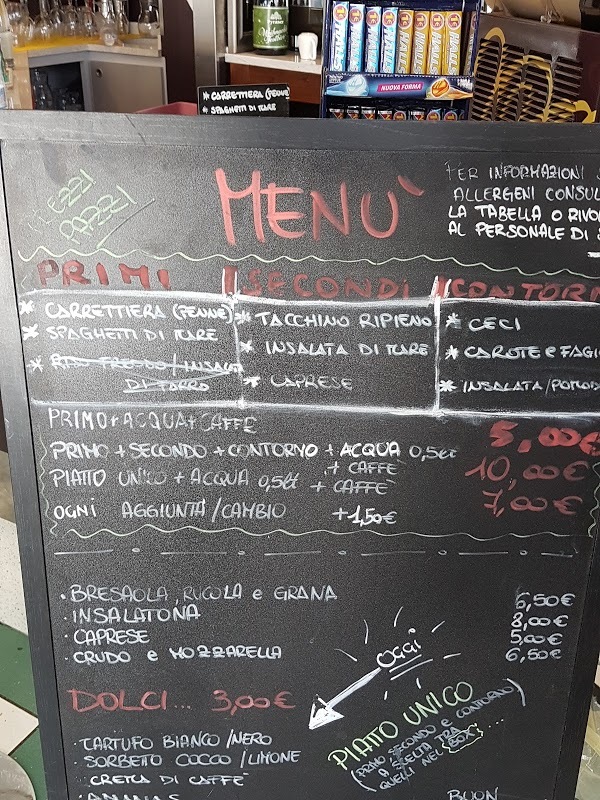 HALLS
NUOVA FORMA
* CARRETTIERA (PENNE)
* SPAGHETTI DI MARE
PEZZI
PAZZI
MENU'
PER INFORMAZIONI
ALLERGENI CONSUL
LA TABELLA O RIVO
AL PERSONALE DI
PRIMI
SECONDI
CONTOR
* CARRETTIERA (PENNE)
* SPAGHETTI DI MARE
* RISO FREDDO / INSALATA
DI FARRO
* TACCHINO RIPIENO
* INSALATA DI MARE
* CAPRESE
* CECI
* CAROTE e FAGI
* INSALATA/POMOD
PRIMO+ACQUA+CAFFE' 5,00€
PRIMO + SECONDO + CONTORNO + ACQUA 0,5lt + CAFFE' 10,00€
PIATTO UNICO + ACQUA 0,5lt + CAFFE' 7,00€
OGNI AGGIUNTA/CAMBIO +1,50€
· BRESAOLA, RUCOLA e GRANA 6,50€
· INSALATONA 8,00€
· CAPRESE 5,00€
· CRUDO e MOZZARELLA 6,50€
OGGI
DOLCI... 3,00€
· TARTUFO BIANCO/NERO
· SORBETTO COCCO/LIMONE
· CREMA DI CAFFE'
· ANANAS
PIATTO UNICO
(PRIMO SECONDO e CONTORNO
A SCELTA TRA
QUELLI NEL BOX)
BUON